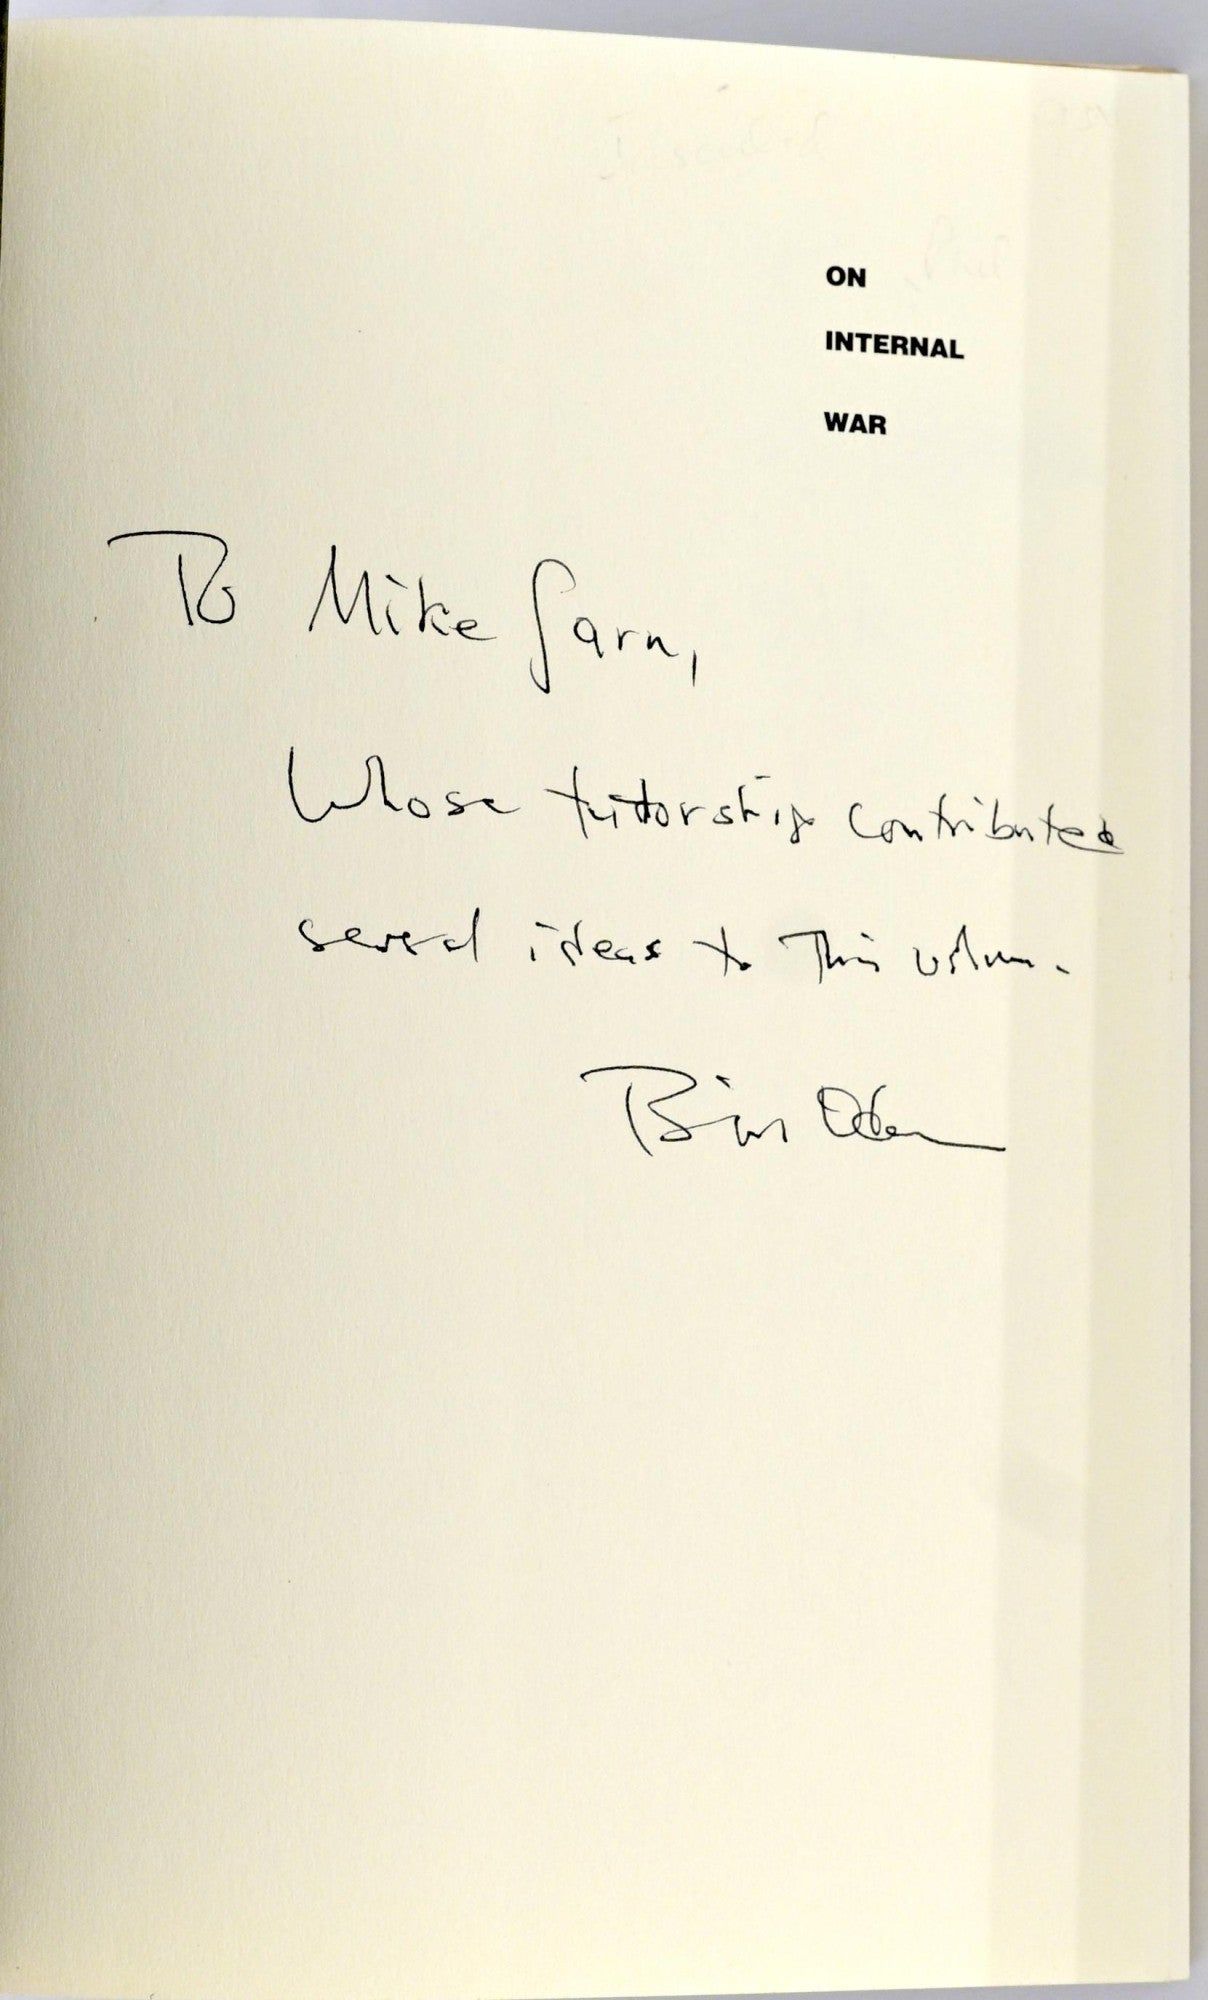 ON
INTERNAL
WAR
To Mike Garn,
Whose tutorship contributed
several ideas to This volume.
Bill Odom